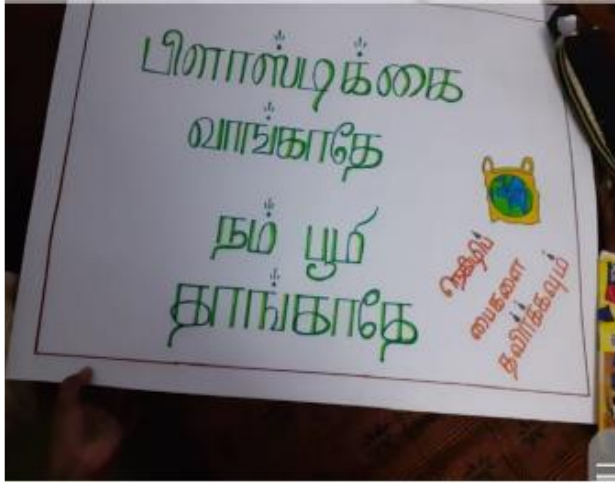 பிளாஸ்டிக்கை
வாங்காதே
நம் பூமி
தாங்காதே
நெகிழிப்
பைகளை
தவிர்க்கவும்